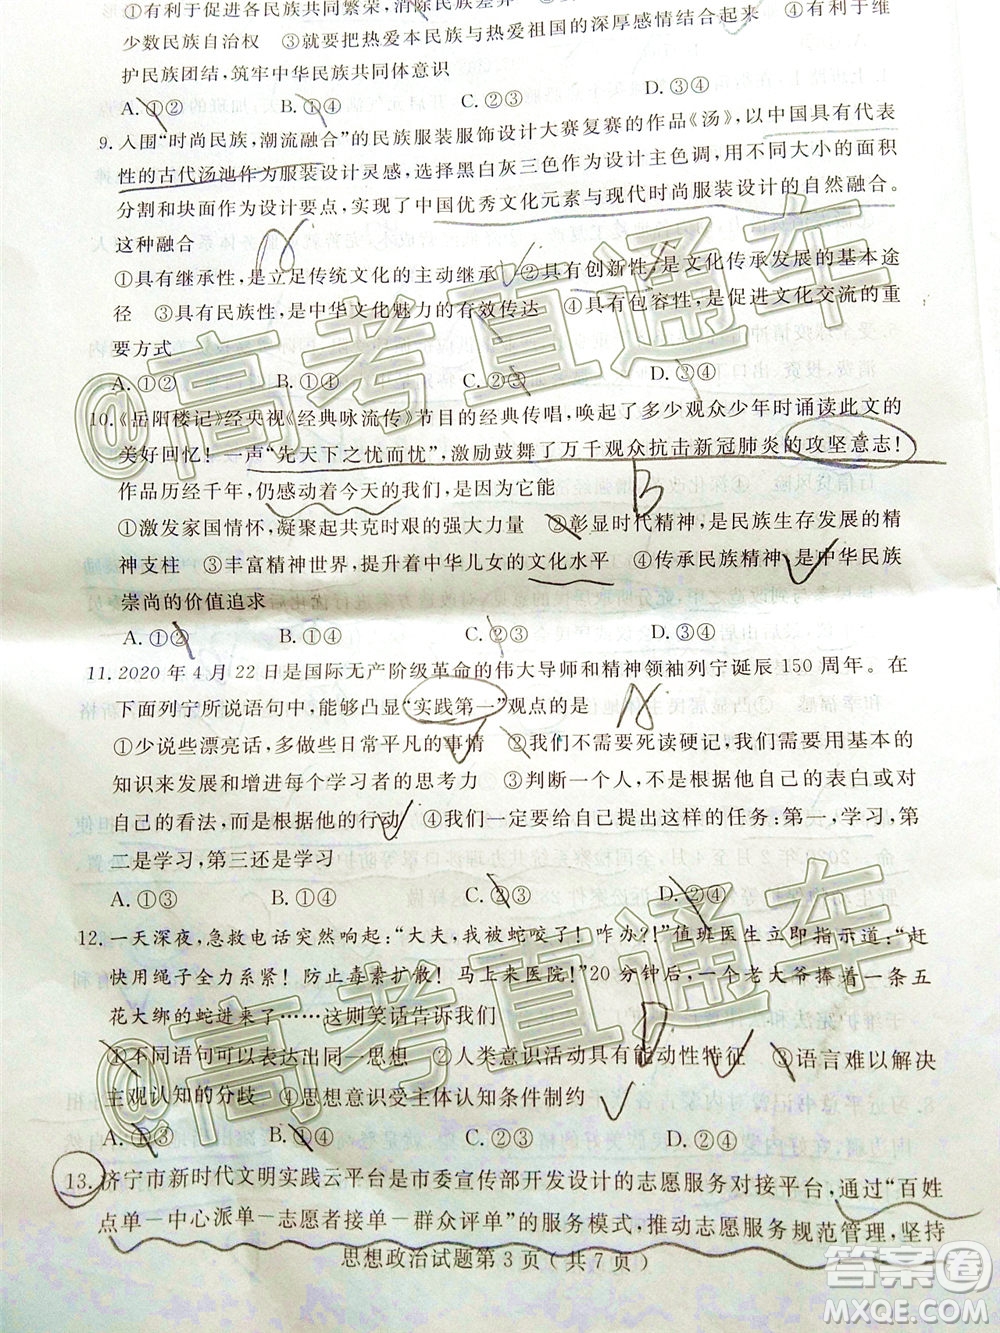 ①有利于促进各民族共同繁荣，消除民族差异　②有利于维
少数民族自治权　③就要把热爱本民族与热爱祖国的深厚感情结合起来　④有利于维
护民族团结，筑牢中华民族共同体意识
A. ①②　B. ①③　C. ②③　D. ③④
9. 入围“时尚民族，潮流融合”的民族服装服饰设计大赛复赛的作品《汤》，以中国具有代表
性的古代汤池作为服装设计灵感，选择黑白灰三色作为设计主色调，用不同大小的面积
分割和块面作为设计要点，实现了中国优秀文化元素与现代时尚服装设计的自然融合。
这种融合
①具有继承性，是立足传统文化的主动继承　②具有创新性，是文化传承发展的基本途
径　③具有民族性，是中华文化魅力的有效传达　④具有包容性，是促进文化交流的重
要方式
A. ①②　B. ①③　C. ②④　D. ③④
10.《岳阳楼记》经央视《经典咏流传》节目的经典传唱，唤起了多少观众少年时诵读此文的
美好回忆！一声“先天下之忧而忧”，激励鼓舞了万千观众抗击新冠肺炎的攻坚意志！
作品历经千年，仍感动着今天的我们，是因为它能
①激发家国情怀，凝聚起共克时艰的强大力量　②彰显时代精神，是民族生存发展的精
神支柱　③丰富精神世界，提高中华儿女的文化水平　④传承民族精神，是中华民族
崇尚的价值追求
A. ①②　B. ①④　C. ②③　D. ③④
11. 2020 年 4 月 22 日是国际无产阶级革命的伟大导师和精神领袖列宁诞辰 150 周年。在
下面列宁所说语句中，能够凸显“实践第一”观点的是
①少说些漂亮话，多做些日常平凡的事情　②我们不需要死读硬记，我们要用基本的
知识来发展和增进每个学习者的思考力　③判断一个人，不是根据他自己的表白或对
自己的看法，而是根据他的行动　④我们一定要给自己提出这样的任务：第一，学习，第
二是学习，第三还是学习
A. ①③　B. ①④　C. ②③　D. ②④
12. 一天深夜，急救电话突然响起：“大夫，我被蛇咬了！咋办?！”值班医生立即指示道：“赶
快用绳子全力系紧！防止毒素扩散！马上来医院！”20 分钟后，一个老大爷捧着一条五
花大绑的蛇进来了……这则笑话告诉我们
①不同语句可以表达出同一思想　②人类意识活动具有能动性特征　③语言难以解决
主观认知的分歧　④思想意识受主体认知条件制约
A. ①③　B. ①④　C. ②③　D. ②④
13. 济宁市新时代文明实践云平台是市委宣传部开发设计的志愿服务对接平台，通过“百姓
点单－中心派单－志愿者接单－群众评单”的服务模式，推动志愿服务规范管理，坚持
思想政治试题第 3 页（共 7 页）
@高考直通车
@高考直通车
A
B
A
D
答案圈
MXQE.COM